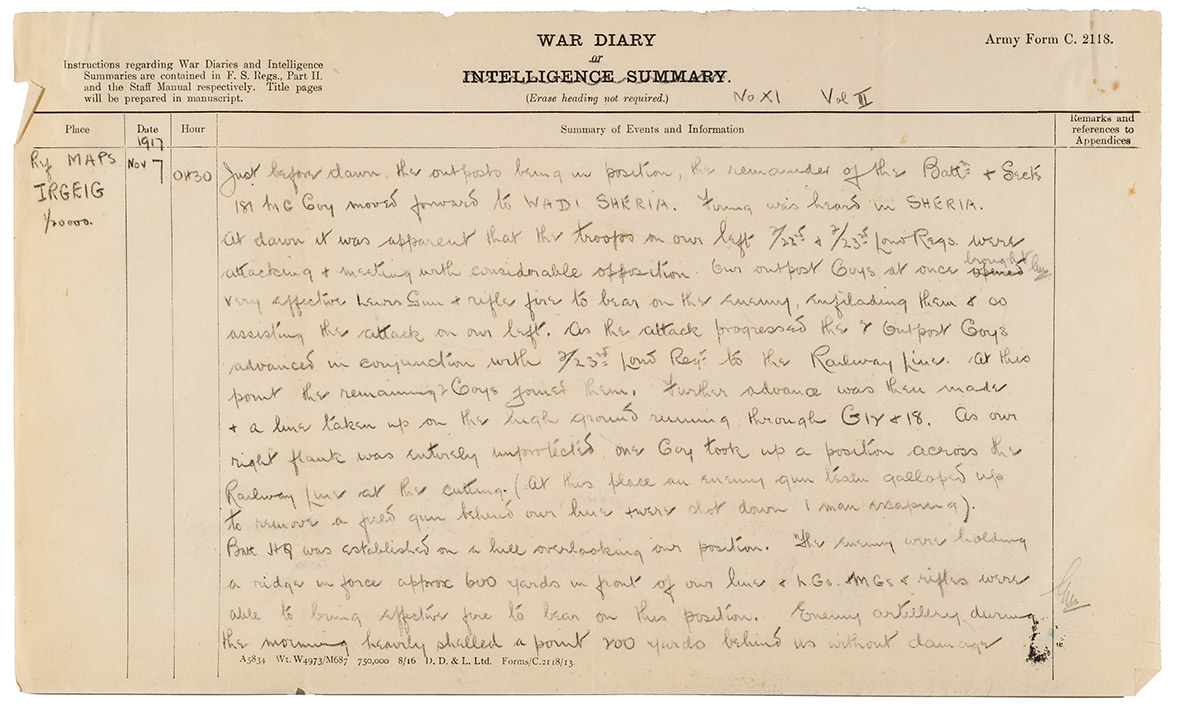 WAR DIARY
or
INTELLIGENCE SUMMARY.
(Erase heading not required.)
No XI Vol II
Army Form C. 2118.
Instructions regarding War Diaries and Intelligence
Summaries are contained in F. S. Regs., Part II.
and the Staff Manual respectively. Title pages
will be prepared in manuscript.
Place
Date
Hour
Summary of Events and Information
Remarks and
references to
Appendices
1917
Ref MAPS
IRGEIG
1/20000.
Nov 7
Just before dawn, the outposts being in position, the remainder of the Battn & Sects
181 MG Coy moved forward to WADI SHERIA. Firing was heard in SHERIA.
At dawn it was apparent that the troops on our left 2/22nd & 2/23rd Lond Regs. were
attacking & meeting with considerable opposition. Our outpost Coys at once brought
very effective Lewis Gun & rifle fire to bear on the enemy, enfilading them & so
assisting the attack on our left. As the attack progressed the 2 Outpost Coys
advanced in conjunction with 2/23rd Lond Regt to the Railway Line. At this
point the remaining 2 Coys joined them. Further advance was then made
& a line taken up on the high ground running through & 18. As our
right flank was entirely unprotected, one Coy took up a position across the
Railway Line at the cutting. (At this place an enemy gun team galloped up
to remove a field gun behind our line & were shot down 1 man escaping).
Batt HQ was established on a hill overlooking our position. The enemy were holding
a ridge in force approx 600 yards in front of our line & LGs. MGs & rifles were
able to bring effective fire to bear on this position. Enemy artillery during
the morning heavily shelled a point 200 yards behind us without damage
A5834 Wt. W4973/M687 750,000 8/16 D. D. & L. Ltd. Forms/C.2118/13.